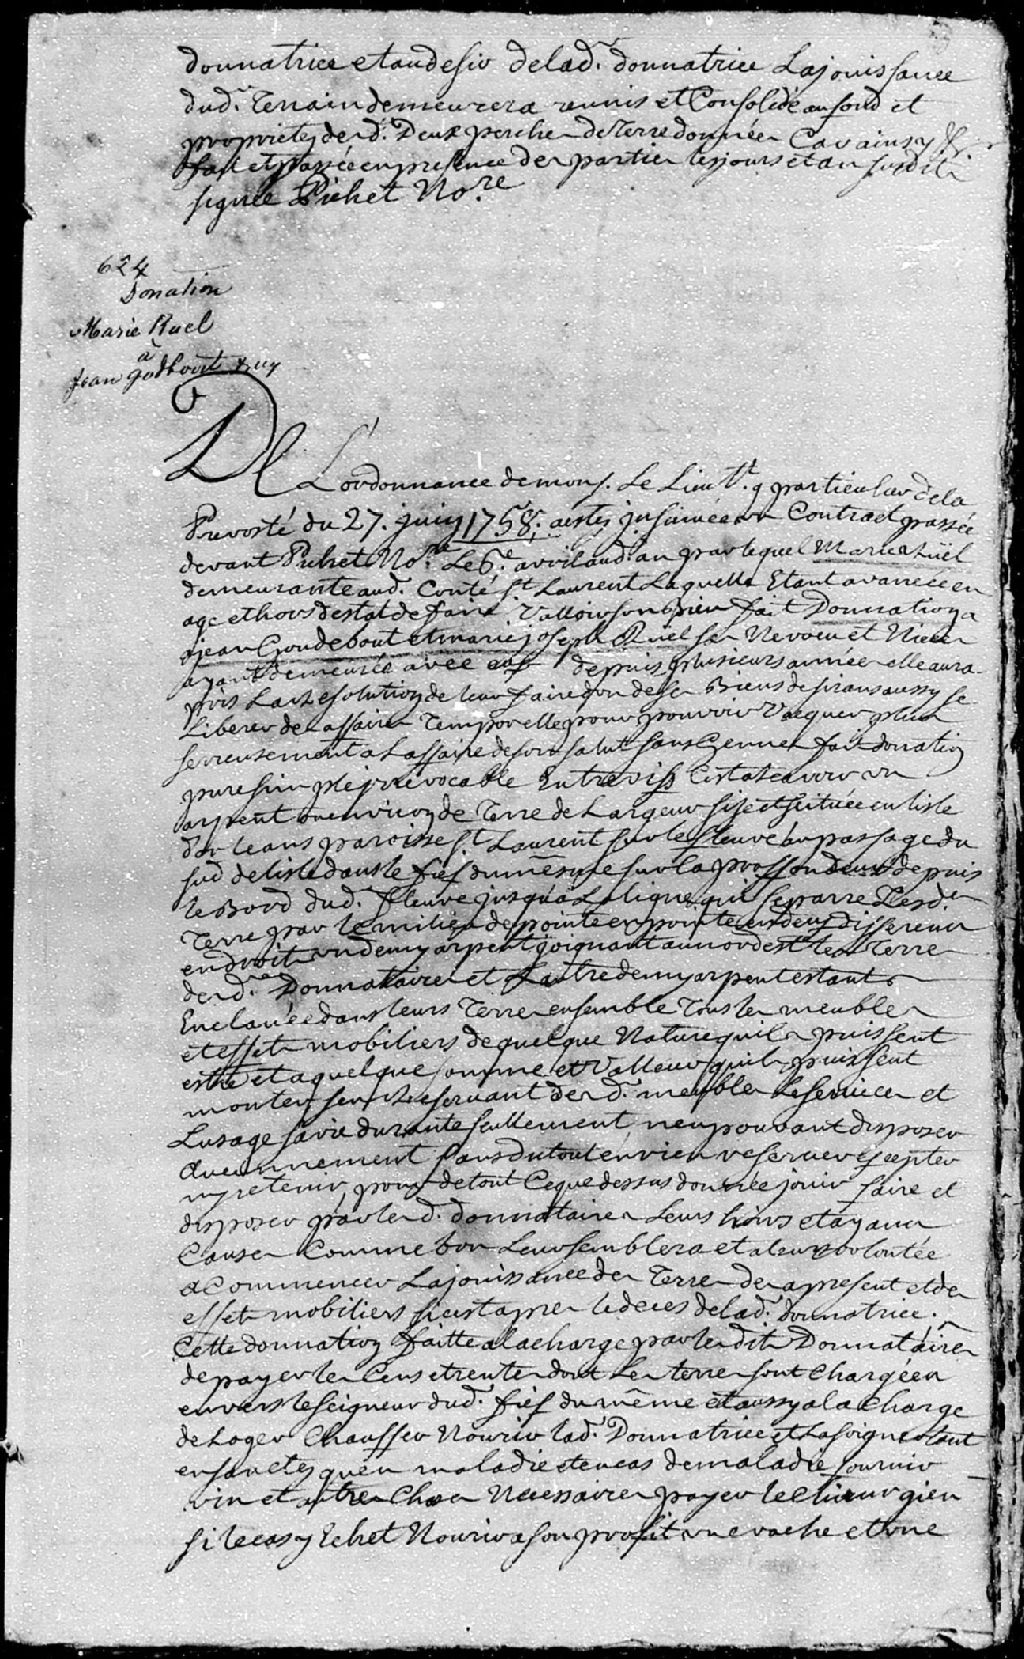 donnatrice et au desir de lad. donnatrice La jouissance
dud. Terrain demeurera reunis et Consolidé au fond et
proprietez desd. Deux perches de Terre données Car ainsy &c.
fait et passée en presence des parties les jours et an susdit
signée Pichet No.re
624
Donation
Marie Ruel
a
Jean godbout & ux
De L'ordonnance de mons. Le Lieut. particulier de la
Prevosté du 27. juin 1758. a estez jnsinuée un Contract passée
devant Pichet No.re Le 6e. avril aud. an par lequel Marie Rüel
demeurante aud. Comté St. Laurent Laquelle Etant avancée en
age et hors destat de faire Valloir son bien fait Donnation a
jean Goudebout et marie joseph Rüel ses Neveu et Niece
ayant demeurée avec eux depuis plusieurs année elle aura
pris La Resolution de leur faire don de ses Biens desirans aussy se
Liberer des affaires Temporelles pour pouvoir Vacquer plus
serieusement a Laffaire de son salut sans Gennes fait donation
pure simple jrrevocable Entre viss Cestasavoir un
arpent ou environ de Terre de Largeur size et scituée en lisle
dorleans paroisse St. Laurent sur le fleuve au passage du
sud de lisle dans le fief du mesme sur la proffondeur depuis
le Bord dud. fleuve jusqu'a La ligne qui separre Lesd.
Terre par le milieu de pointe en pointe en deux differens
endroit un demy arpent joignant au nord est les Terre
desd. Donnataires et Lautre demy arpent estant
Enclavée dans leurs Terre ensemble Tous les meubles
et effets mobiliers de quelque Nature quils puissent
estre et a quelque somme et Valleur quils puissent
monter se Reservant desd. meubles Le service et
Lusage sa vie durante seullement nen pouvant disposer
Aucunnement sans du tout en rien reserver Excepter
ny retenir, pour de tout Ce que dessus donnée jouir faire et
disposer par lesd. donnataires Leurs hoirs et ayans
Causes Comme bon Leur semblera et a leur volontée
a Commencer La jouissance des Terres des a present et des
effets mobiliers sicest apres le deces de lad. Donnatrice.
Cette donnation faitte a la charge par lesdits Donnataires
de payer les Cens et rente dont Les terres sont Chargées
envers le seigneur dud. fief du même et aussy a la Charge
de Loger Chauffer Nourir lad. Donnatrice et La soigner tout
en santez quen maladie et en cas de maladie fournir
vin et autres Choses Necessaires payer le Chirurgien
si le cas y Echet Nourir a son proffit une vache et une